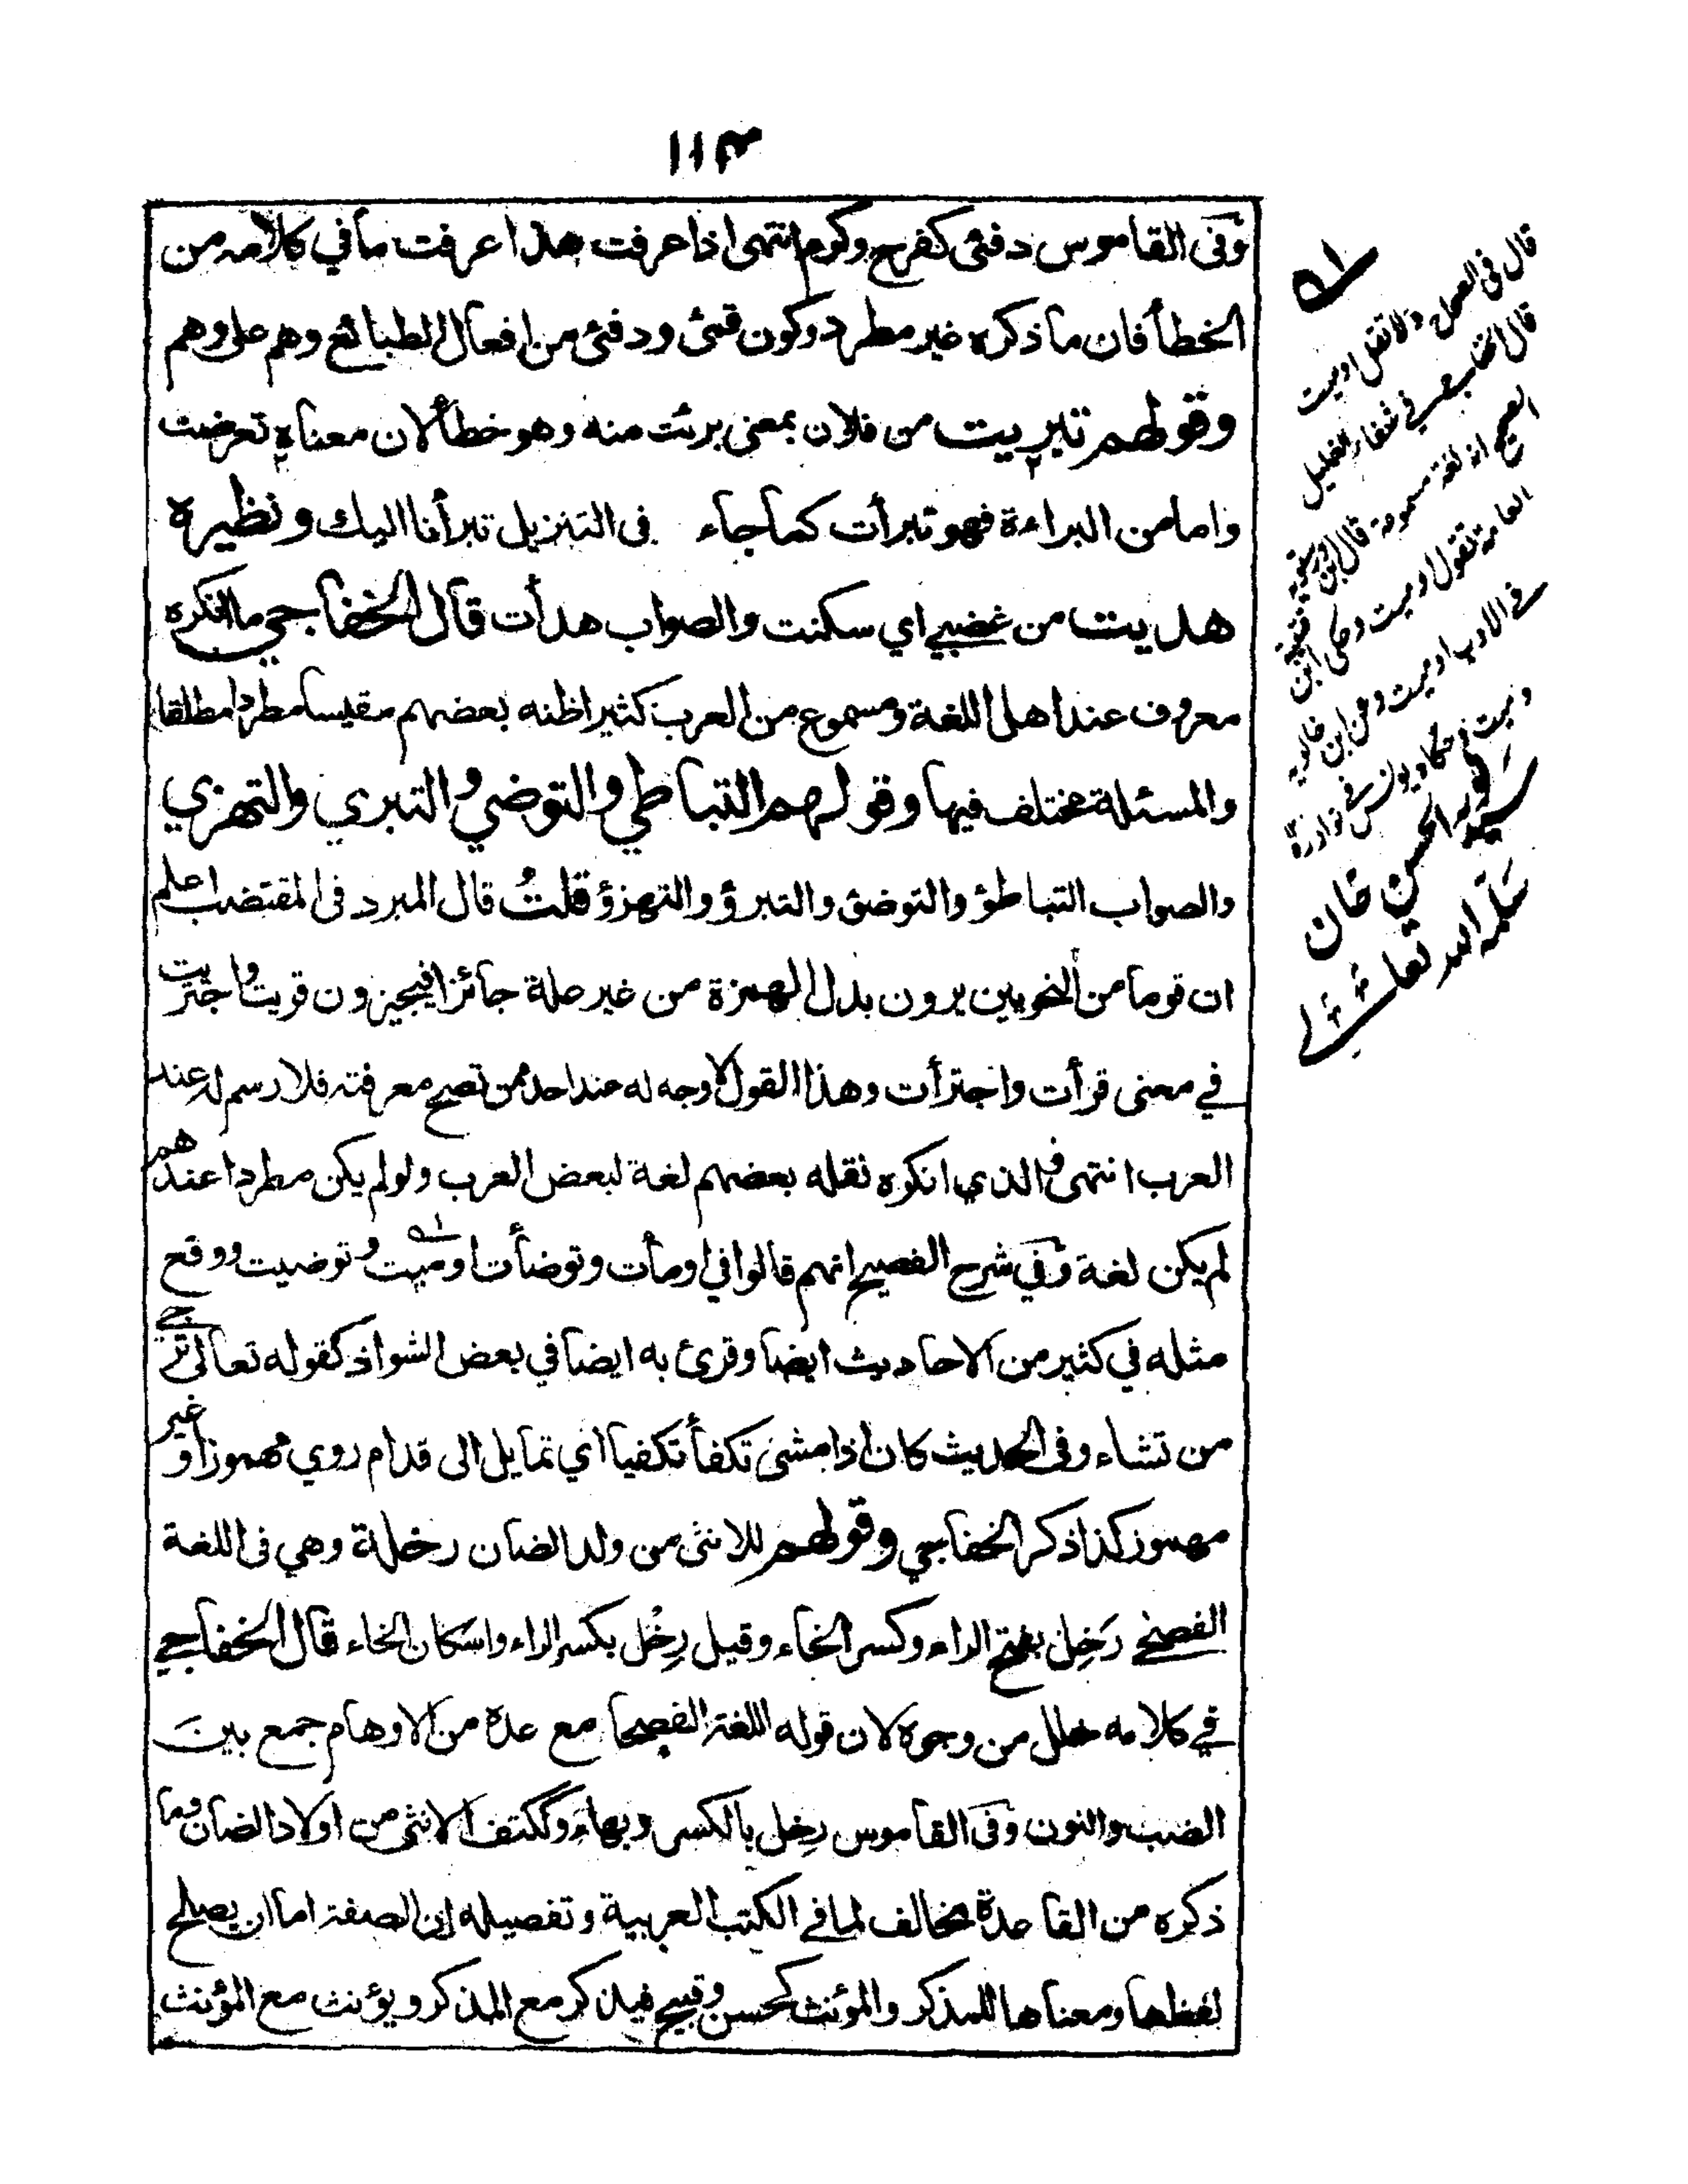 ١١٣
وفى القاموس دفئ كفرح وكرم انتهى اذا عرفت هذا عرفت ما في كلامه من
الخطأ فان ما ذكره غير مطرد وكون قمئ ودفئ من افعال الطبائع وهم على وهم
وقولهم تبريت من فلان بمعنى برئت منه وهو خطأ لان معناه تعرضت
واما من البراءة فهو تبرأت كما جاء فى التنزيل تبرأنا اليك ونظيره
هديت من غضبي اي سكنت والصواب هدأت قال الخفاجي ما انكره
معروف عند اهل اللغة ومسموع من العرب كثيرا ظنه بعضهم مقيسا مطردا مطلقا
والمسئلة مختلف فيها وقولهم التباطي والتوضي والتبري والتهزي
والصواب التباطؤ والتوضئ والتبرؤ والتهزؤ قلت قال المبرد فى المقتضب اعلم
ان قوما من النحويين يرون بدل الهمزة من غير علة جائزا فيجيزون قريت واجتريت
في معنى قرأت واجترأت وهذا القول لا وجه له عند احد ممن تصح معرفته فلا رسم له عند
العرب انتهى فالذي انكره نقله بعضهم لغة لبعض العرب ولو لم يكن مطردا عندهم
لم يكن لغة وفي شرح الفصيح انهم قالوا في اومأت وتوضأت اوميت وتوضيت ووقع
مثله في كثير من الاحاديث ايضا وقرئ به ايضا في بعض الشواذ كقوله تعالى ترجي
من تشاء وفى الحديث كان اذا مشى تكفأ تكفيا اي تمايل الى قدام روي مهموزا وغير
مهموز كذا ذكر الخفاجي وقولهم للانثى من ولد الضان رخلة وهي فى اللغة
الفصحى رَخِل بفتح الراء وكسر الخاء وقيل رِخْل بكسر الراء واسكان الخاء قال الخفاجي
في كلامه خلل من وجوه لان قوله اللغة الفصحا مع عدة من الاوهام جمع بين
الضب والنون وفى القاموس رخل بالكسر وبهاء وككتف الانثى من اولاد الضان وما
ذكره من القاعدة مخالف لما في الكتب العربية وتفصيله ان الصفة اما ان يصلح
لفظها ومعناها للمذكر والمؤنث كحسن وقبيح فيذكر مع المذكر ويؤنث مع المؤنث
قال فى ولا تقل اوميت
قال في شفاء الغليل
الصحيح انه لغة مسموعة قال ابن
العامة تقول اوميت وحكى ابن قتيبة
في الادب اوميت وعن ابن خالويه
في نوادره
سيد نور الحسن خان
سلمه الله تعالى